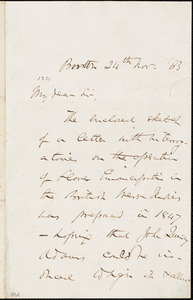 Boston 24th Nov. '63
My dear Sir,
The enclosed sketch
of a letter with interrog-
atories on the operation
of Slave Emancipation in
the British West Indies
was prepared in 1847
— hoping that John Quincy
Adams could be in-
duced